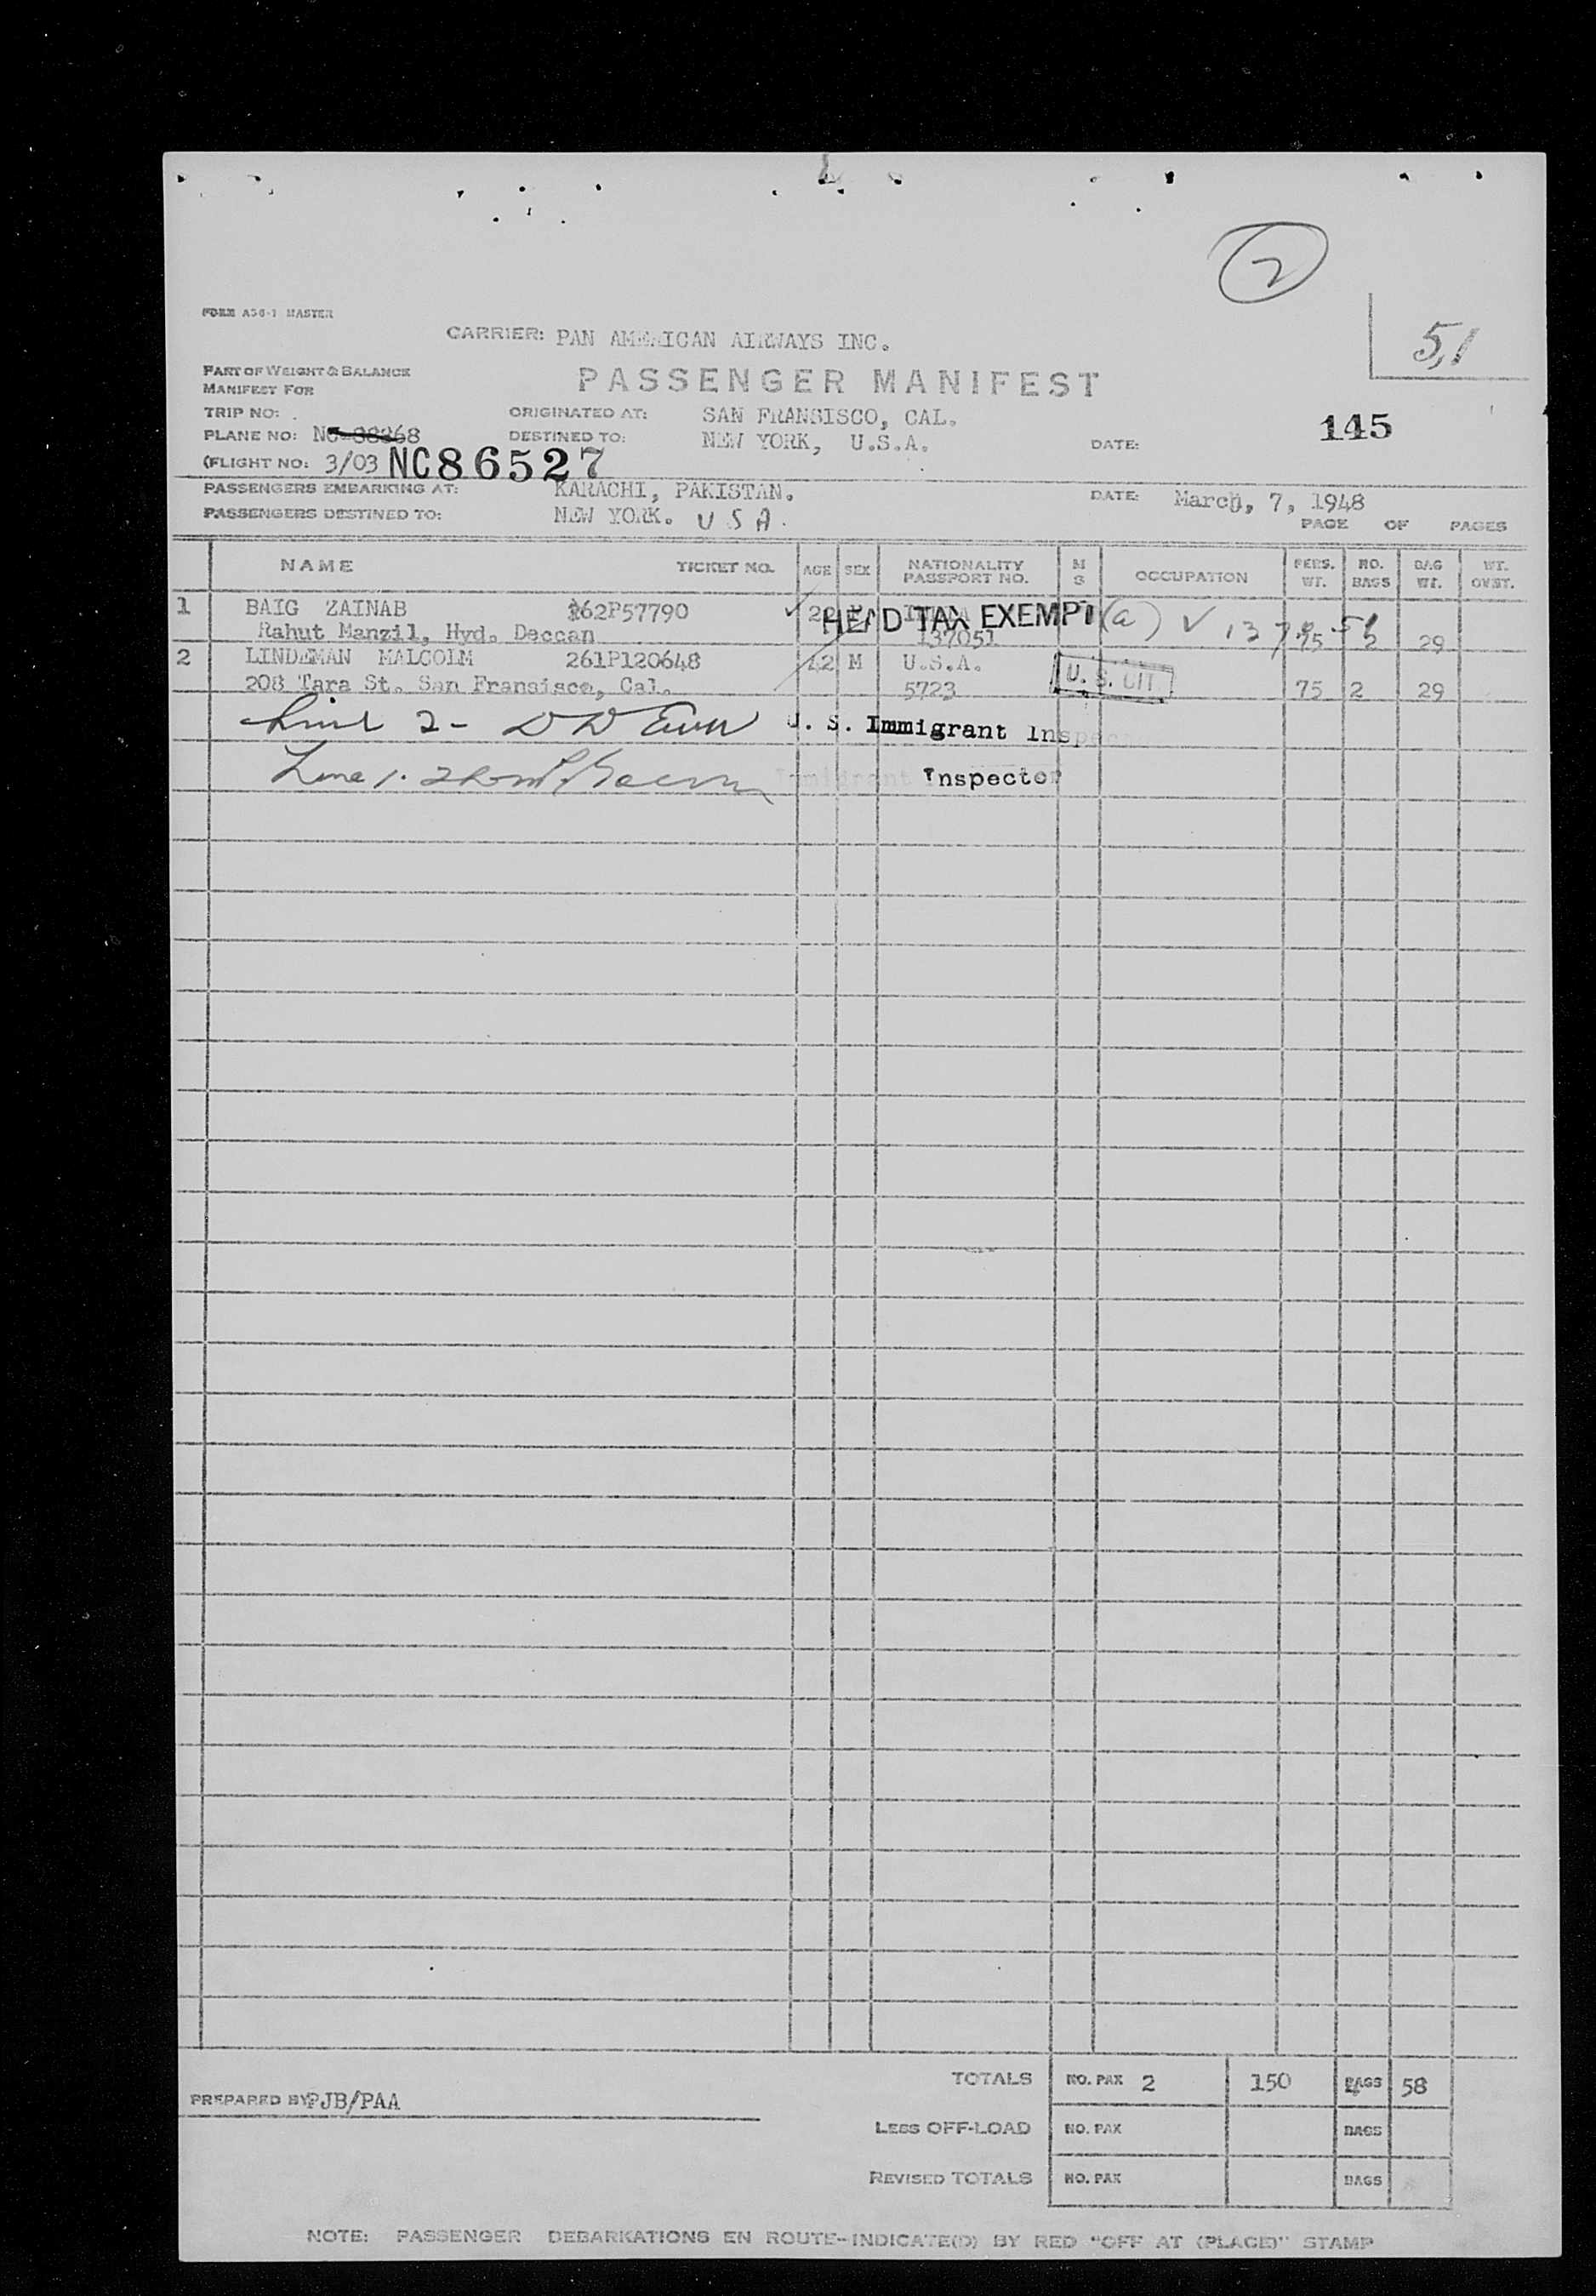 2
FORM A36-1 MASTER
CARRIER: PAN AMERICAN AIRWAYS INC.
51
PART OF WEIGHT & BALANCE
MANIFEST FOR
PASSENGER MANIFEST
TRIP NO: .
ORIGINATED AT: SAN FRANSISCO, CAL.
145
PLANE NO: NC-88868
DESTINED TO: NEW YORK, U.S.A.
DATE:
(FLIGHT NO: 3/03 NC86527
PASSENGERS EMBARKING AT: KARACHI, PAKISTAN.
DATE: March, 7, 1948
PASSENGERS DESTINED TO: NEW YORK. USA.
PAGE OF PAGES
NAME TICKET NO. AGE SEX NATIONALITY PASSPORT NO. M S OCCUPATION PERS. WT. NO. BAGS BAG WT. WT. OVST.
1 BAIG ZAINAB 162P57790 HEAD TAX EXEMPT (a) ✓
Rahut Manzil, Hyd. Deccan 137051 75 2 29
2 LINDEMAN MALCOLM 261P120648 42 M U.S.A. U. S. CIT
208 Tara St. San Fransisco, Cal. 5723 75 2 29
Line 2 - U. S. Immigrant Inspector
Line 1. Immigrant Inspector
TOTALS NO. PAX 2 150 BAGS 58
PREPARED BY PJB/PAA
LESS OFF-LOAD NO. PAX BAGS
REVISED TOTALS NO. PAX BAGS
NOTE: PASSENGER DEBARKATIONS EN ROUTE-INDICATE(D) BY RED "OFF AT (PLACE)" STAMP